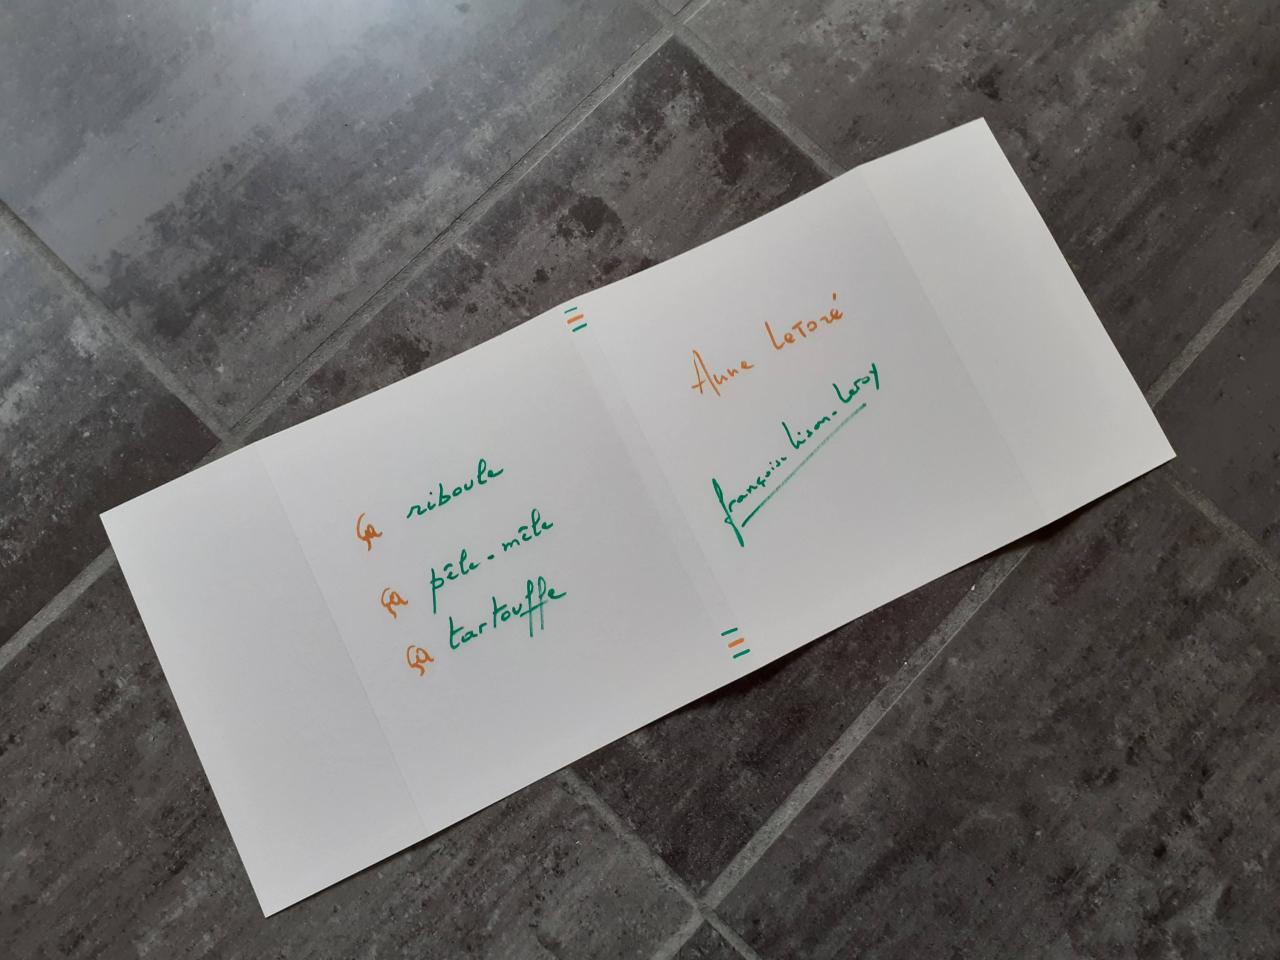 ça riboule
ça pêle-mêle
ça tartouffe
Anne Letoré
françoise Lison-Leroy